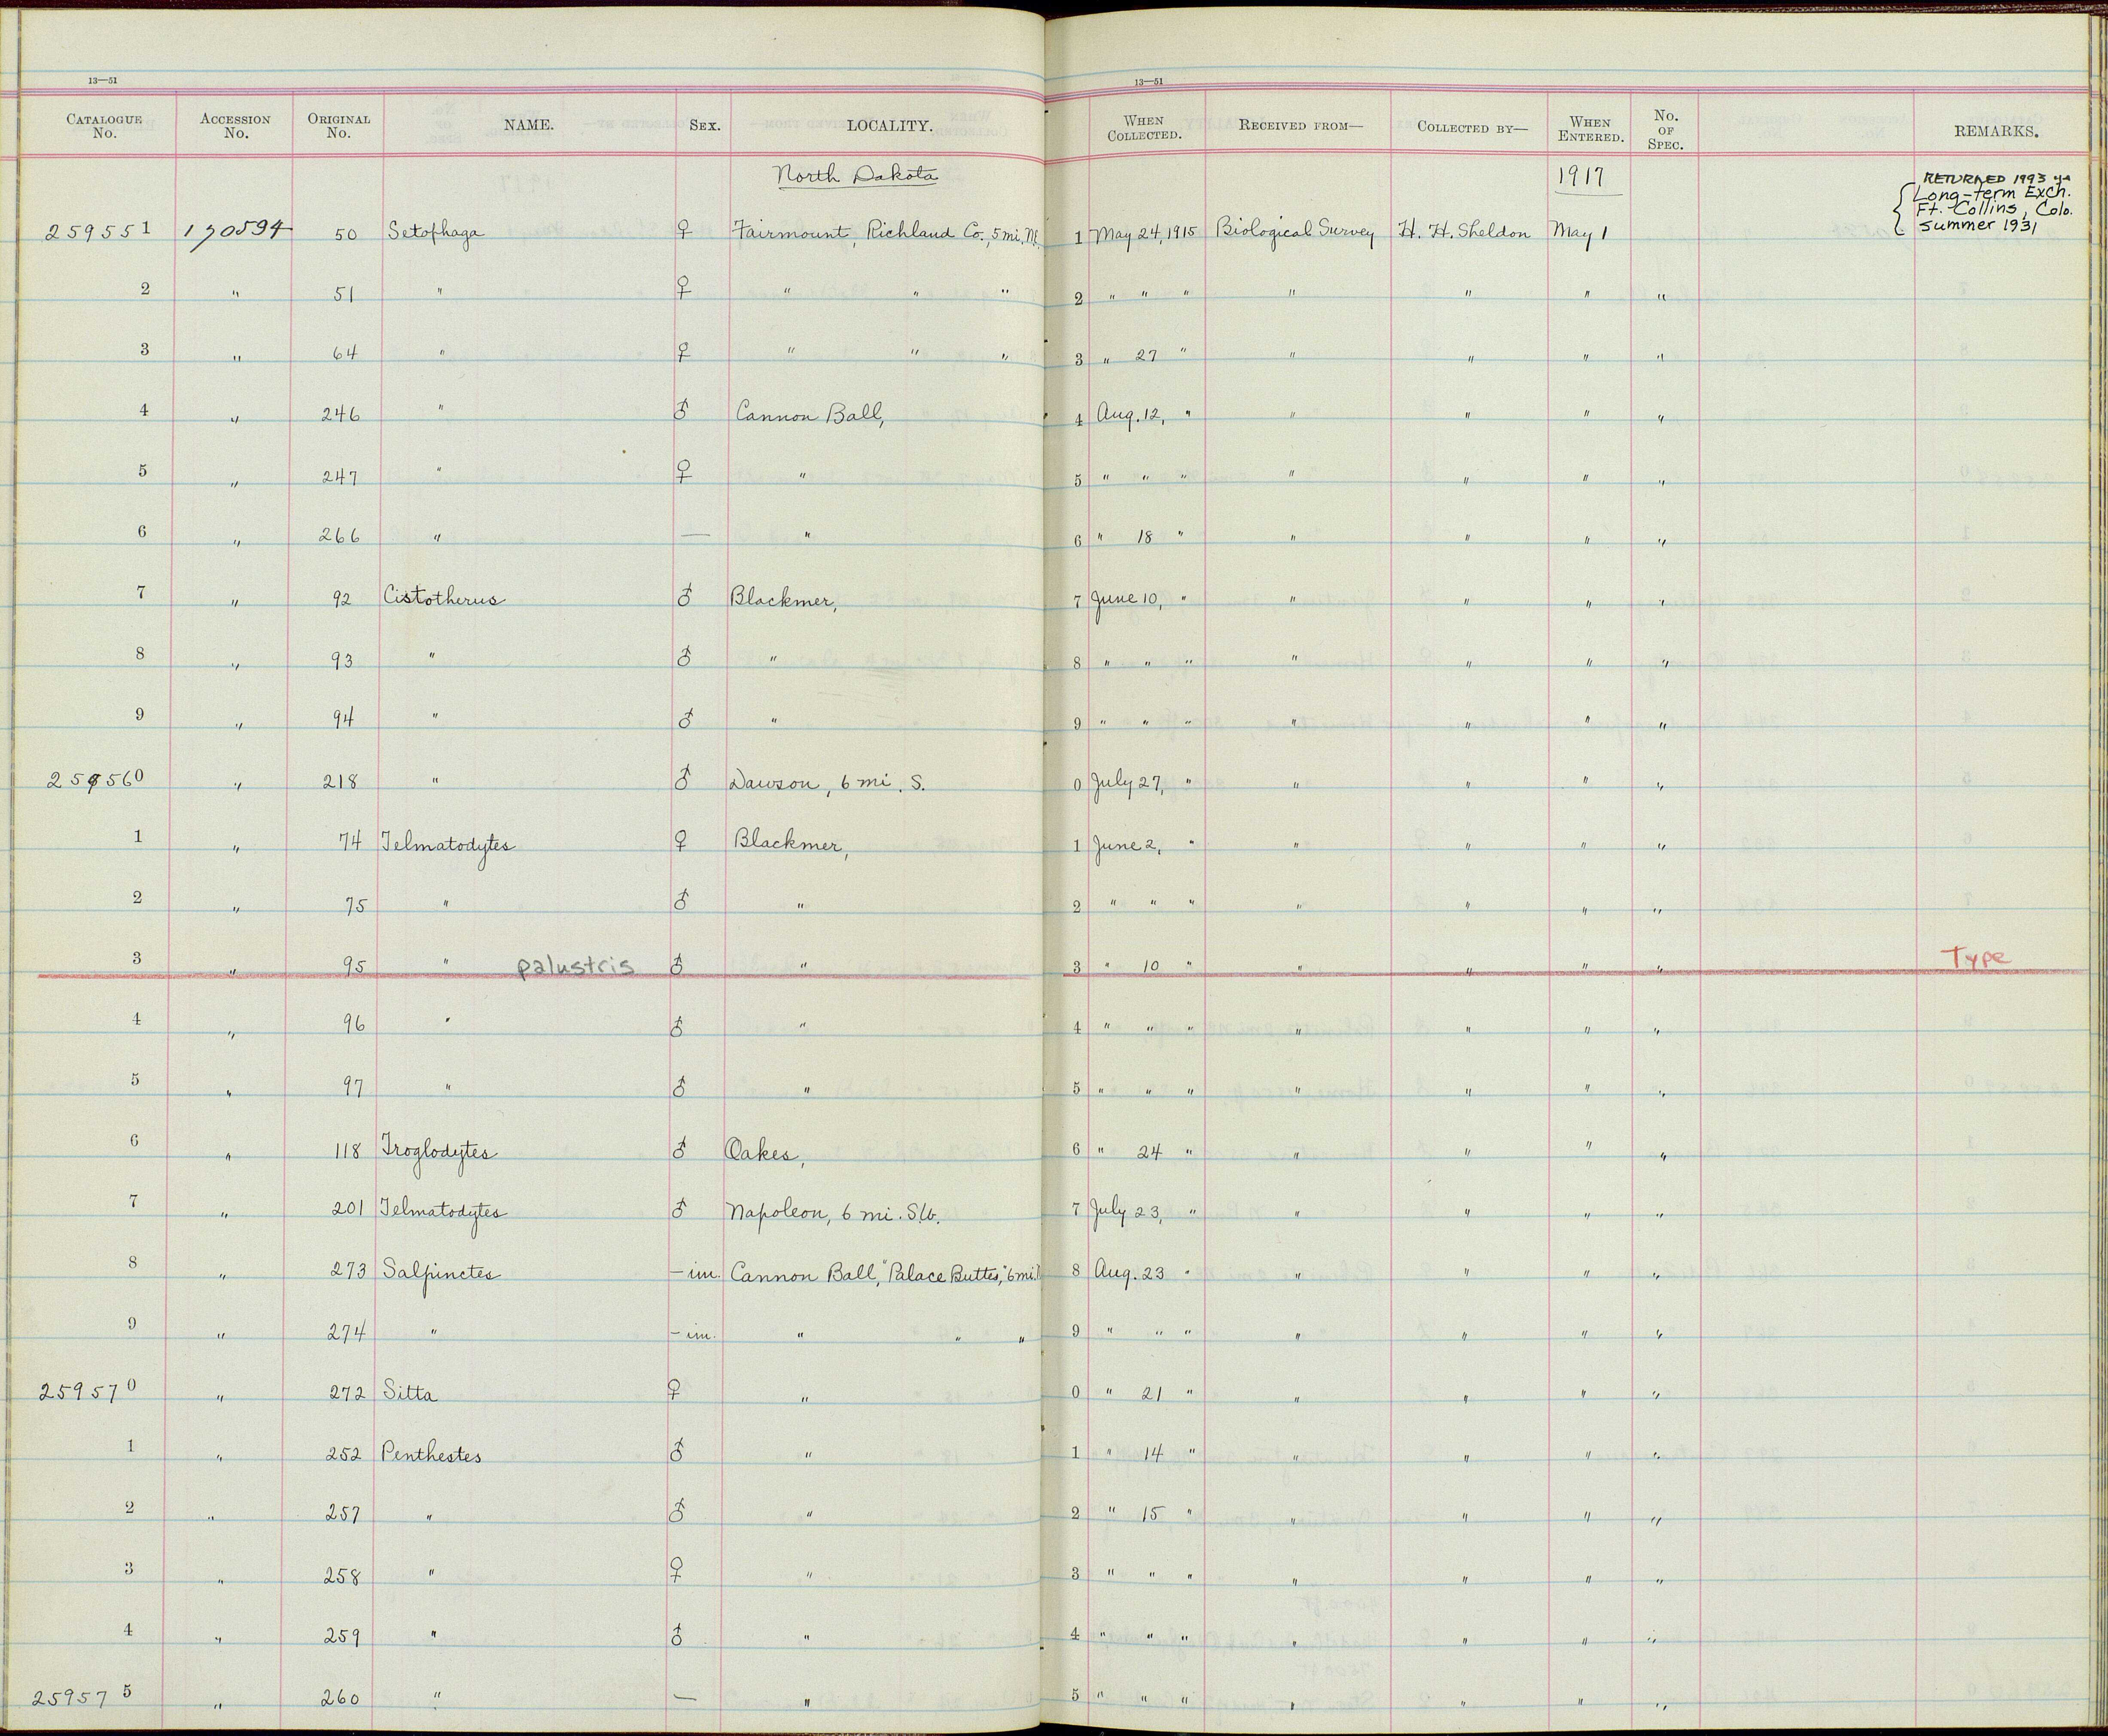 13—51
13—51
CATALOGUE No. ACCESSION No. ORIGINAL No. NAME. SEX. LOCALITY. WHEN COLLECTED. RECEIVED FROM— COLLECTED BY— WHEN ENTERED. No. OF SPEC. REMARKS.
North Dakota 1917
RETURNED 1993
Long-term Exch.
Ft. Collins, Colo.
summer 1931
259551 170594 50 Setophaga ♀ Fairmount, Richland Co., 5 mi. 1 May 24, 1915 Biological Survey H. H. Sheldon May 1
2 " 51 " ♀ " " " 2 " " " " " " "
3 " 64 " ♀ " " " 3 " 27 " " " " "
4 " 246 " ♂ Cannon Ball, 4 Aug. 12, " " " " "
5 " 247 " ♀ " 5 " " " " " " "
6 " 266 " — " 6 " 18 " " " " "
7 " 92 Cistothorus ♂ Blackmer, 7 June 10, " " " " "
8 " 93 " ♂ " 8 " " " " " " "
9 " 94 " ♂ " 9 " " " " " " "
259560 " 218 " ♂ Dawson, 6 mi. S. 0 July 27, " " " " "
1 " 74 Telmatodytes ♀ Blackmer, 1 June 2, " " " " "
2 " 75 " ♂ " 2 " " " " " " "
3 " 95 " palustris ♂ " 3 " 10 " " " " " Type
4 " 96 " ♂ " 4 " " " " " " "
5 " 97 " ♂ " 5 " " " " " " "
6 " 118 Troglodytes ♂ Oakes, 6 " 24 " " " " "
7 " 201 Telmatodytes ♂ Napoleon, 6 mi. S.W. 7 July 23, " " " " "
8 " 273 Salpinctes — im. Cannon Ball, "Palace Buttes," 6 mi. 8 Aug. 23 " " " " "
9 " 274 " — im. " " " 9 " " " " " " "
259570 " 272 Sitta ♀ " 0 " 21 " " " " "
1 " 252 Penthestes ♂ " 1 " 14 " " " " "
2 " 257 " ♂ " 2 " 15 " " " " "
3 " 258 " ♀ " 3 " " " " " " "
4 " 259 " ♂ " 4 " " " " " " "
259575 " 260 " — " 5 " " " " " " "